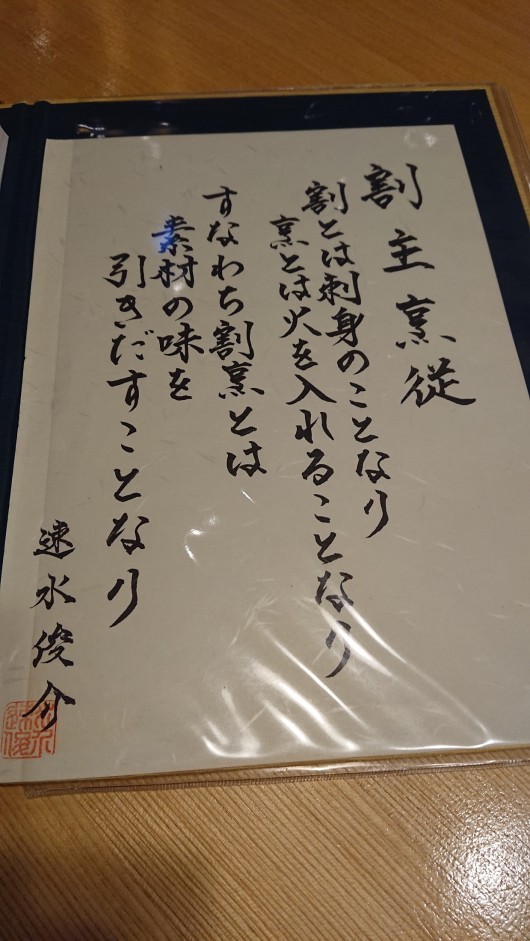 割主烹従
割とは刺身のことなり
烹とは火を入れることなり
すなわち割烹とは
素材の味を
引きだすことなり
速水俊介